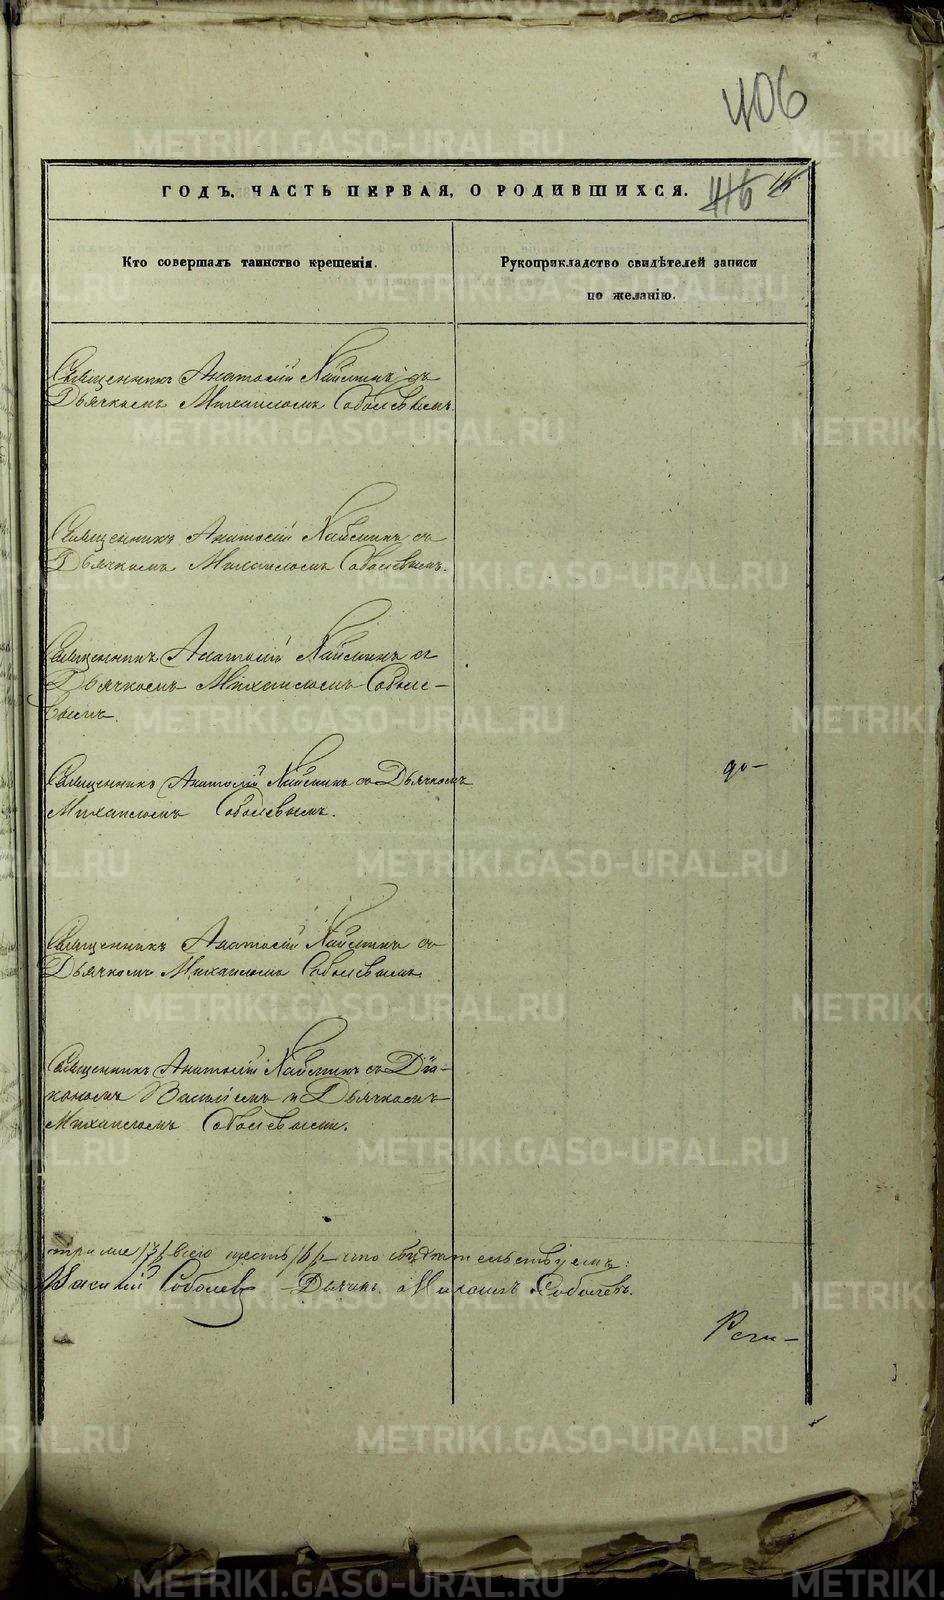 406
ГОДЪ, ЧАСТЬ ПЕРВАЯ, О РОДИВШИХСЯ.
416 15
Кто совершалъ таинство крещенія.
Рукоприкладство свидѣтелей записи
по желанію.
Священникъ Анатолій Наумовъ съ
Дьячкомъ Михаиломъ Соболевымъ.
Священникъ Анатолій съ
Дьячкомъ Михаиломъ Соболевымъ.
Священникъ Анатолій съ
Дьячкомъ Михаиломъ Соболе-
вымъ.
Священникъ Анатолій съ Дьячкомъ
до-
Михаиломъ Соболевымъ.
Священникъ Анатолій съ
Дьячкомъ Михаиломъ Соболевымъ.
Священникъ Анатолій съ Діа-
кономъ Василіемъ и Дьячкомъ
Михаиломъ Соболевыми.
три /3/ всего шесть /6/ – что свидѣтельствуемъ:
Василій Соболевъ Дьячекъ Михаилъ Соболевъ.
Реги-
METRIKI.GASO-URAL.RU